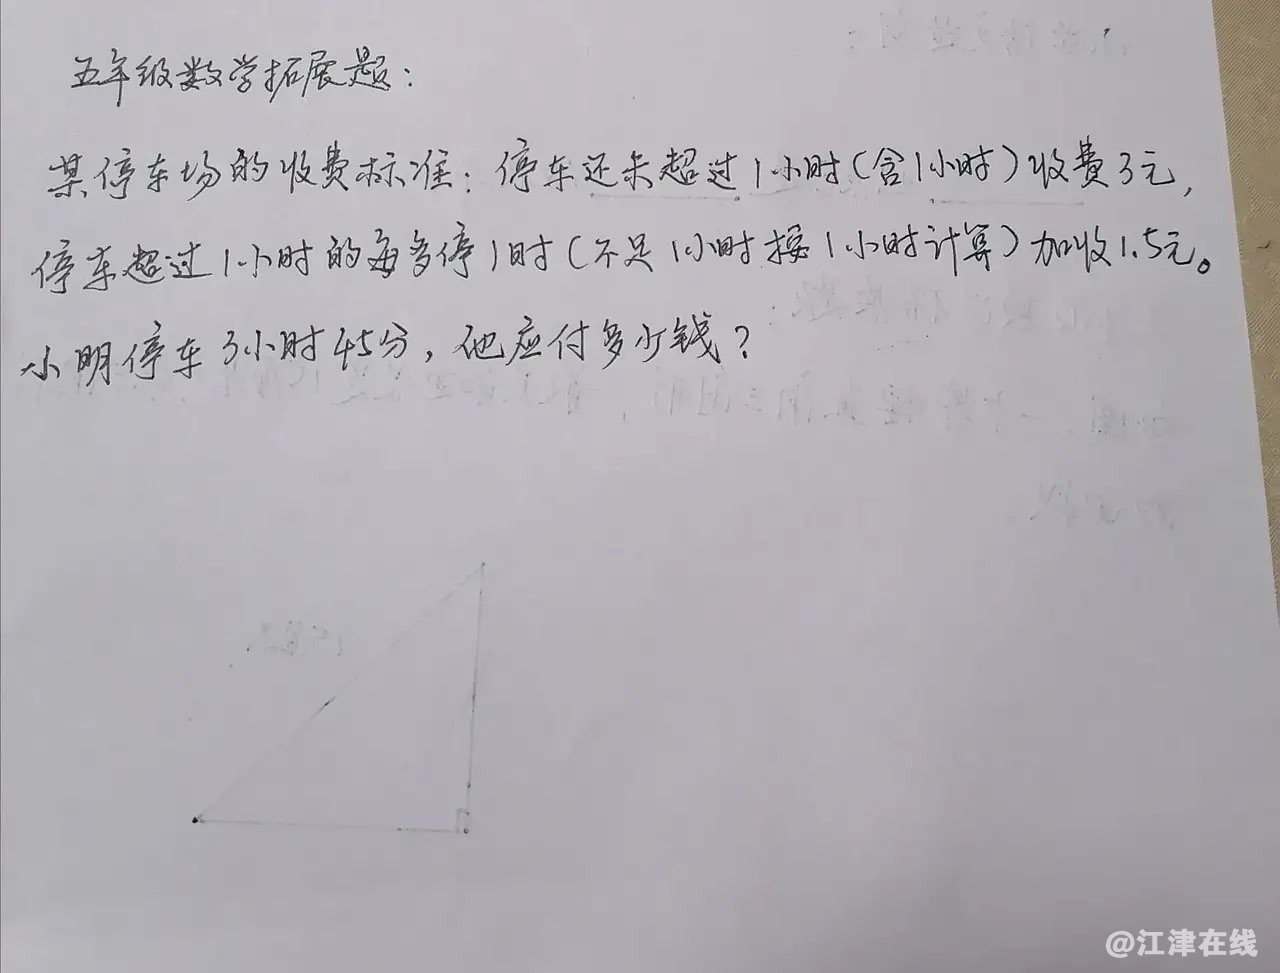 五年级数学拓展题：
某停车场的收费标准：停车还未超过1小时（含1小时）收费3元，
停车超过1小时的每多停1时（不足1小时按1小时计算）加收1.5元。
小明停车3小时45分，他应付多少钱？
@江津在线